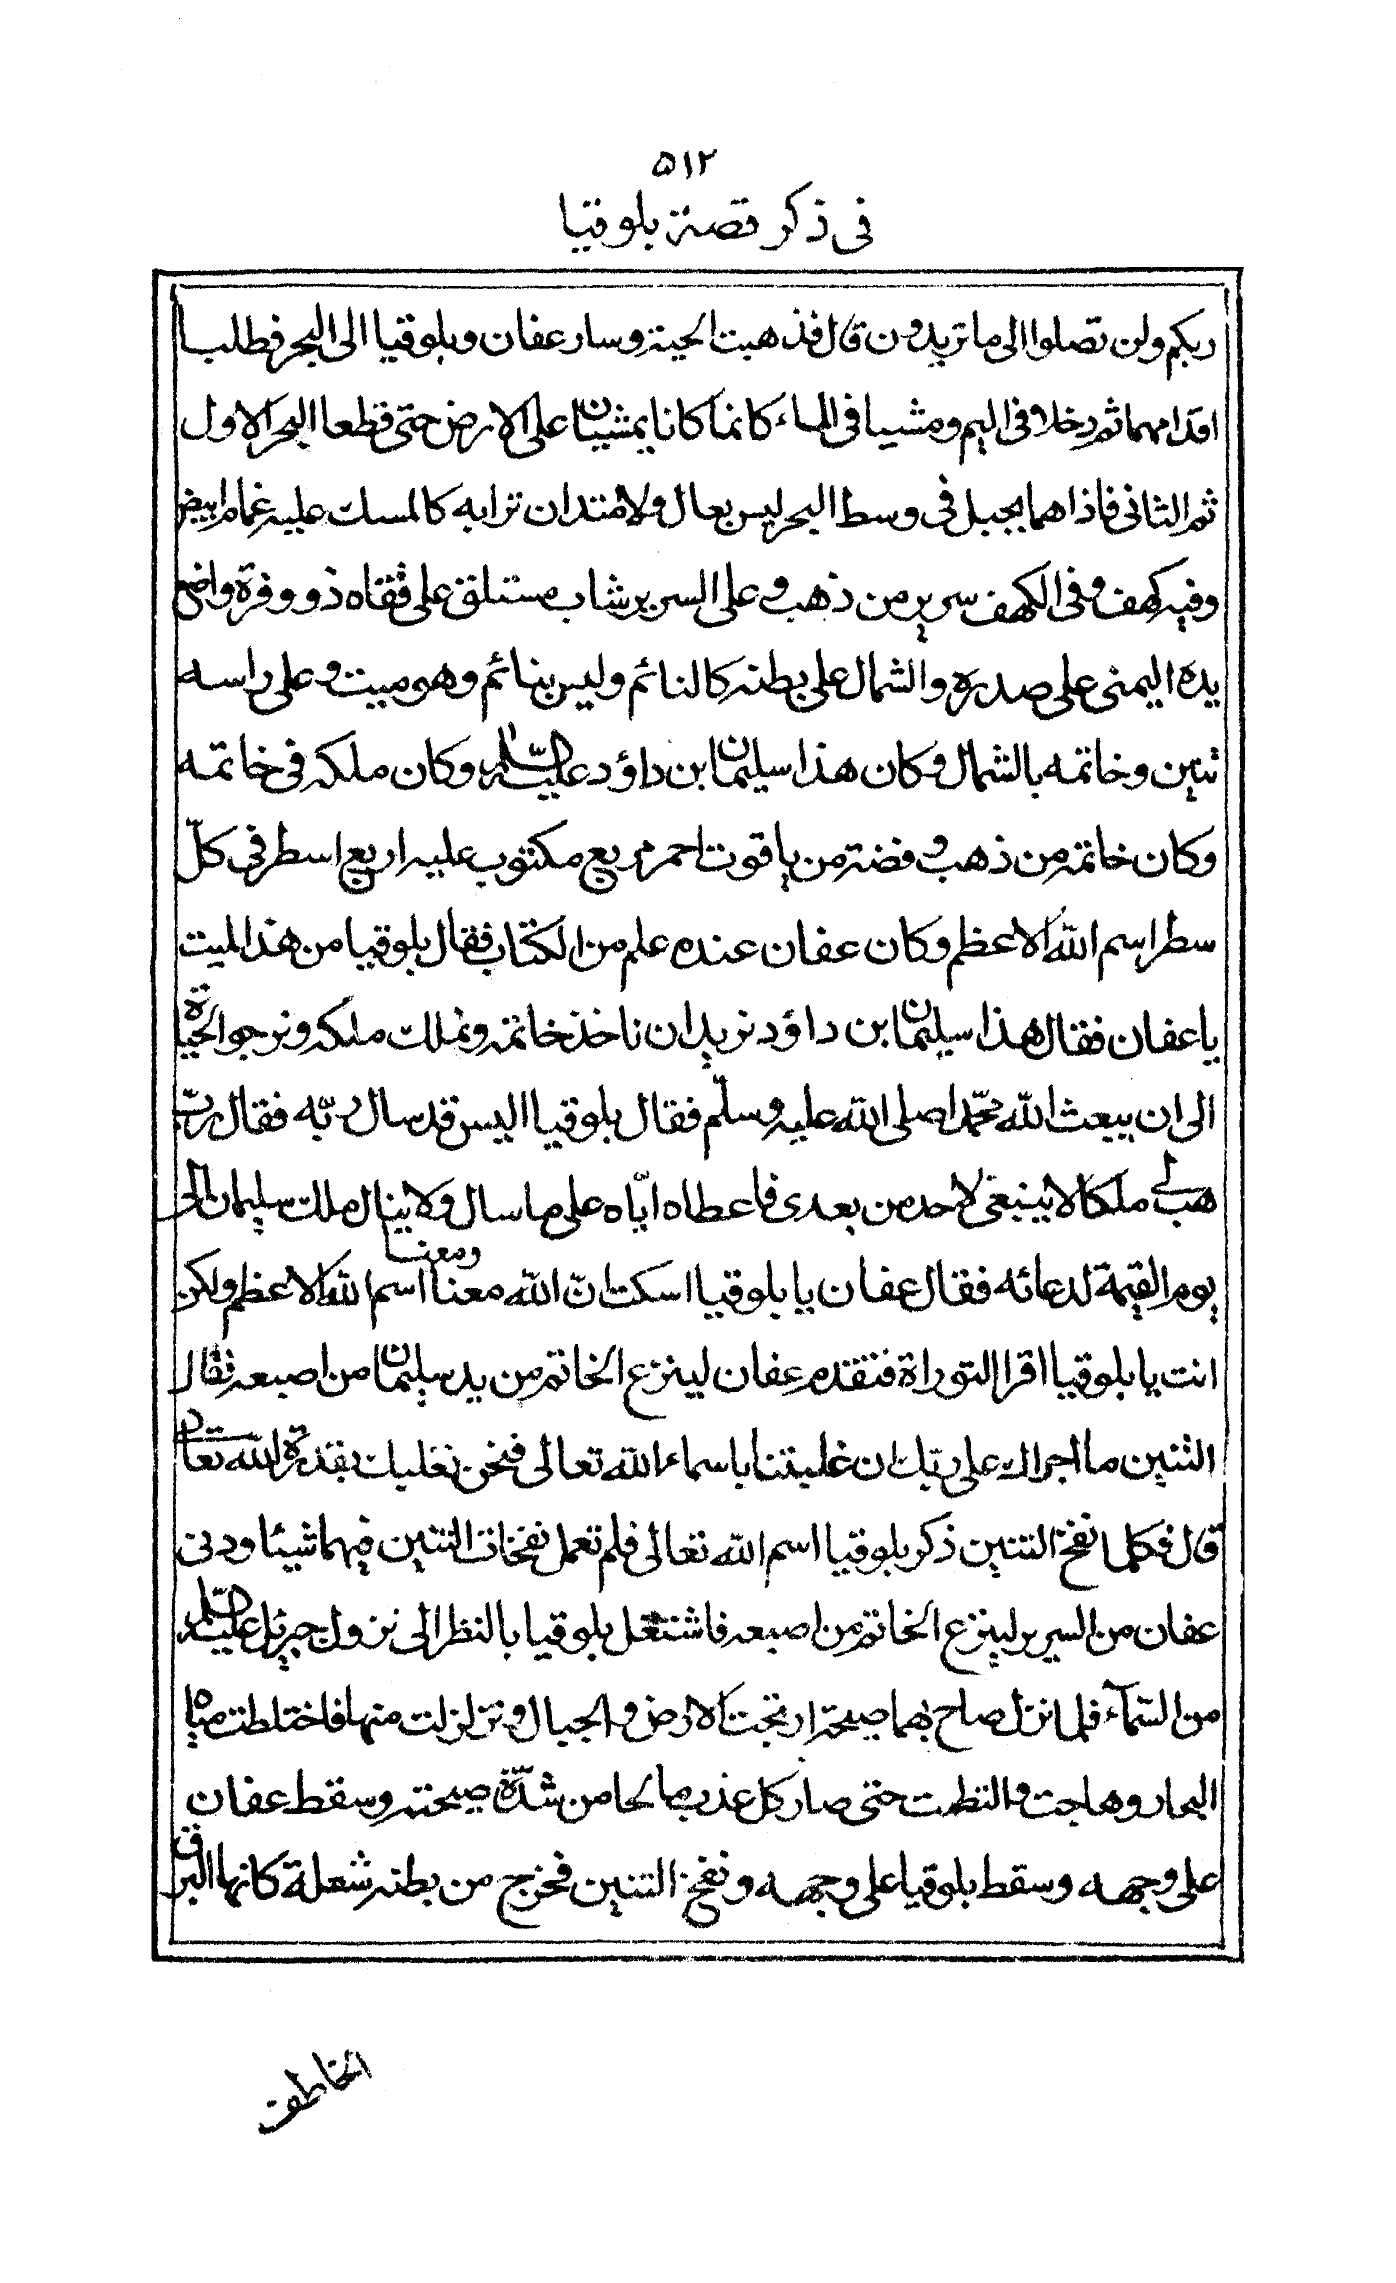 ۵۱۲
فى ذكر قصة بلوقيا
ربكم ولن تصلوا الى ما تريدون قال فذهبت الحية وسار عفان وبلوقيا الى البحر فطلبا
اقدامهما ثم دخلا فى اليم ومشيا فى الماء كانما كانا يمشيان على الارض حتى قطعا البحر الاول
ثم الثانى فاذا هما بجبل فى وسط البحر ليس بعال ولا متدان ترابه كالمسك عليه غمام ابيض
وفيه كهف وفى الكهف سرير من ذهب وعلى السرير شاب مستلق على قفاه ذو وفرة واضع
يده اليمنى على صدره والشمال على بطنه كالنائم وليس بنائم وهو ميت وعلى راسه
تنين وخاتمه بالشمال وكان هذا سليمان ابن داؤد عليه السلام وكان ملكه فى خاتمه
وكان خاتمه من ذهب وفضة من ياقوت احمر مربع مكتوب عليه اربع اسطر فى كلّ
سطر اسم الله الاعظم وكان عفان عنده علم من الكتاب فقال بلوقيا من هذا الميت
يا عفان فقال هذا سليمان ابن داؤد نريد ان ناخذ خاتمه ونملك ملكه ونرجوا الحياة
الى ان يبعث الله محمّدا صلى الله عليه وسلّم فقال بلوقيا اليس قد سال ربّه فقال ربّ
هب لى ملكا لا ينبغى لاحد من بعدى فاعطاه ايّاه على ما سال ولا ينال ملك سليمان الى
يوم القيمة لدعائه فقال عفان يا بلوقيا اسكت انّ الله معنا ومعنا اسم الله الاعظم ولكن
انت يا بلوقيا اقرا التوراة فتقدم عفان لينزع الخاتم من يد سليمان من اصبعه فقال
التنين ما اجراك على ربّك ان غلبتنا باسماء الله تعالى فنحن نغلبك بقدرة الله تعالى
قال فكلما نفخ التنين ذكر بلوقيا اسم الله تعالى فلم تعمل نفخات التنين فيهما شيئا ودنى
عفان من السرير لينزع الخاتم من اصبعه فاشتغل بلوقيا بالنظر الى نزول جبرئيل عليه السلام
من السّماء فلما نزل صاح بهما صيحة ارتجت الارض والجبال وتزلزلت منها فاختلطت مياه
البحار وهاجت والتطمت حتى صار كل عذب مالحا من شدّة صيحته وسقط عفان
على وجهه وسقط بلوقيا على وجهه ونفخ التنين فخرج من بطنه شعلة كانها البرق
الخاطف